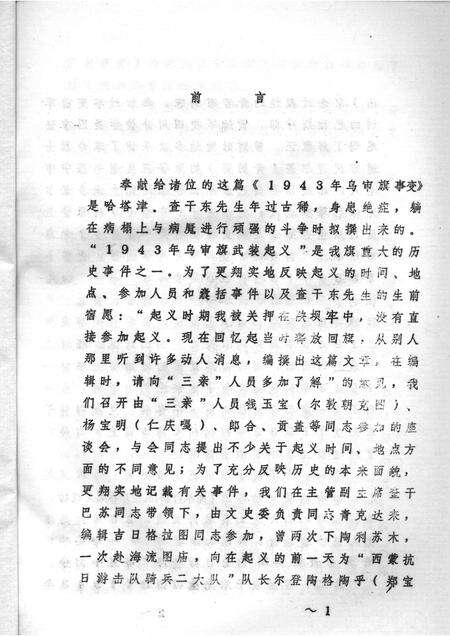 前言
奉献给诸位的这篇《1943年乌审旗事变》
是哈塔津。查干东先生年过古稀，身患绝症，躺
在病榻上与病魔进行顽强的斗争时拟撰出来的。
“1943年乌审旗武装起义”是我旗重大的历
史事件之一。为了更翔实地反映起义的时间、地
点、参加人员和囊括事件以及查干东先生的生前
宿愿：“起义时期我被关押在陕坝牢中，没有直
接参加起义。现在回忆起当时释放回旗，从别人
那里听到许多动人消息，编撰出这篇文章。在编
辑时，请向“三亲”人员多加了解”的意见，我
们召开由“三亲”人员钱玉宝（尔敦朝克图）、
杨宝明（仁庆嘎）、郎合、贡盖等同志参加的座
谈会，与会同志提出不少关于起义时间、地点方
面的不同意见；为了充分反映历史的本来面貌，
更翔实地记载有关事件，我们在主管副主席
巴苏同志带领下，由文史委负责同志青克达来，
编辑吉日格拉图同志参加，曾两次下陶利苏木，
一次赴海流图庙，向在起义的前一天为“西蒙抗
日游击队骑兵二大队”队长尔登陶格陶乎（郑宝
～1